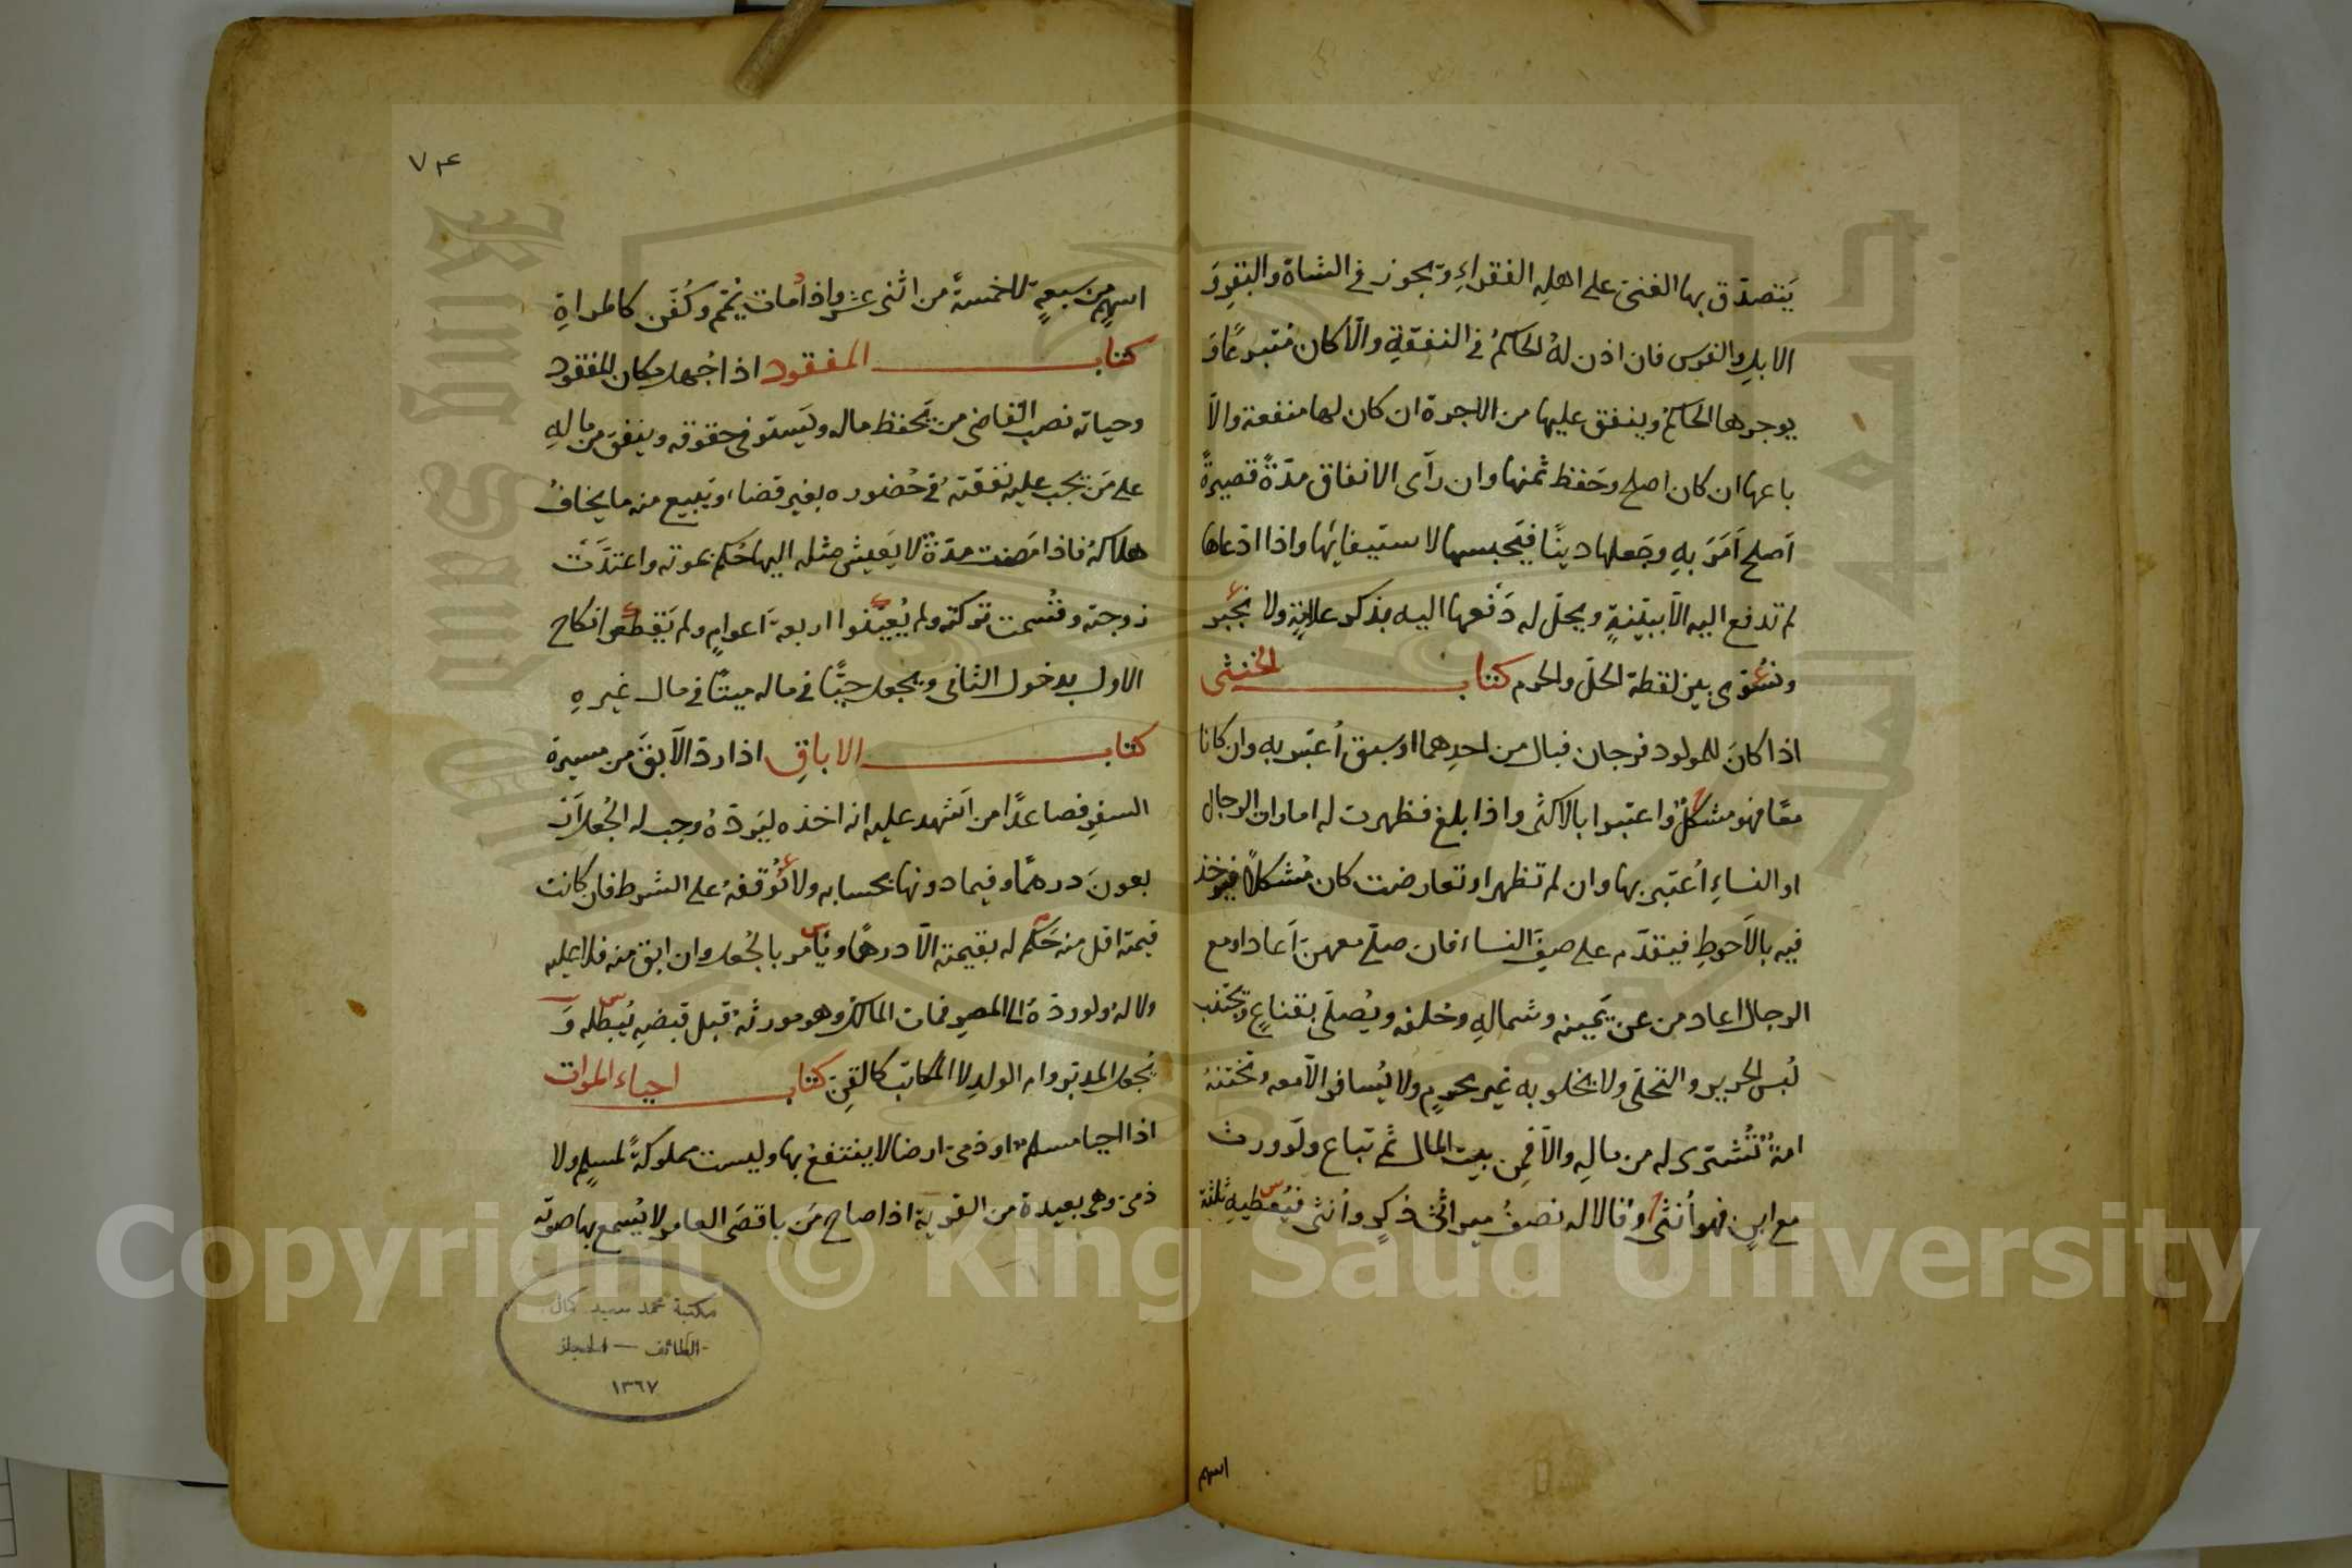 يَتصدّق بها الغنىّ على اهلِه الفقراءِ ويجوز فى الشاة والبقرِ وَ
الابلِ والفرس فان اذن لهُ الحاكمُ فى النفقةِ والّا كان مُتبرعًا وَ
يوجرها الحاكمُ وينفق عليها من الاجرة ان كان لها منفعة والاّ
باعها ان كان اصلح وحَفظ ثمنها وان رآى الانفاق مدّةً قصيرةً
اَصلح اَمَرَ بهِ وجَعلها دينًا فيَحبسها لاستيفائها واذا ادّعاها
لم تدفع اليه الاّ ببيّنةٍ ويحلّ له دَفعها اليه بذكر علامةٍ ولا نجبر
ونسُوّى بين لقطة الحلّ والحرم كتاب الخنثى
اذا كانَ للمولود فرجان فبال من احدِهما او سبق اُعتبر به وان كانا
معًا فهو مشكلٌ واعتبرا بالاكثر واذا بلغ فظهرت له امارات الرجال
او النساءِ اُعتبر بها وان لم تظهر او تعارضت كان مُشكلاً فيؤخذ
فيه بالاَحوطِ فيتقدّم على صفِّ النساء فان صلّى معهن اَعاد او مع
الرجال اعاد من عن يَمينه وشمالهِ وخلفه ويُصلّى بقناعٍ ويَجتنب
لبُس الحرير والتحلّى ولا يخلو به غير محرمٍ ولا يُسافر الاّ معه وتختنهُ
امةٌ تُشترى له من مالِه والاّ فمِن بيت المال ثم تباع ولَو ورث
مع ابنٍ فهو اُنثى وقالا له نصفُ ميراثَى ذكرٍ واُنثى فيُعطيهِ ثلثة
اسهم
٧٣
اسهمٍ من سَبعةٍ لا خمسةً من اثنى عشر واذا مات يُمّم وكُفّن كالمراةِ
كتاب المفقود اذا جُهل مكان المفقود
وحياته نصب القاضى من يَحفظ ماله ويَستوفى حقوقه وينفق من مالهِ
على مَن يجب عليه نَفقتهُ فى حُضوره بغير قضاء ويَبيع منه ما يخافُ
هلاكهُ فاذا مَضت مدّةٌ لا يَعيش مثله اليها حُكم بموته واعتدَّتْ
زوجته وقُسمت تركته ولم يُعيّنوا اربعة اَعوامٍ ولم يَقطعوا نكاح
الاول بدخول الثانى ويُجعل حيًّا فى ماله ميتًا فى مال غيرهِ
كتاب الاباقِ اذا ردّ الآبقَ من مسيرة
السفرِ فصاعدًا من اَشهد عليه انه اخذه ليَردّهُ وجب له الجُعل اَرْ
بعونَ درهمًا وفيما دونها بحسابه ولا نُوقفهُ على الشرط فان كانت
قيمته اقل منه حَكم له بقيمته الاّ درهمًا ويأمر بالجُعل وان ابق منه فلا عليه
ولا لهُ ولو ردّهُ الى المصرِ فمات المالك وهو مورثهُ قبل قبضهِ يُبطله وَ
يُجعل المدبّر وام الولدِ لا المكاتَب كالقِنّ كتاب احياء الموات
اذا احيا مسلمٌ او ذمىّ ارضا لا ينتفعُ بها وليست مملوكةً لمسلمٍ ولا
ذمىّ وهى بعيدة من القرية اذا صاح مَن باقصَى العامر لا يُسمع بها صوته
مكتبة محمد سعيد كمال
الطائف — الحجاز
١٣٦٧
Copyright © King Saud University